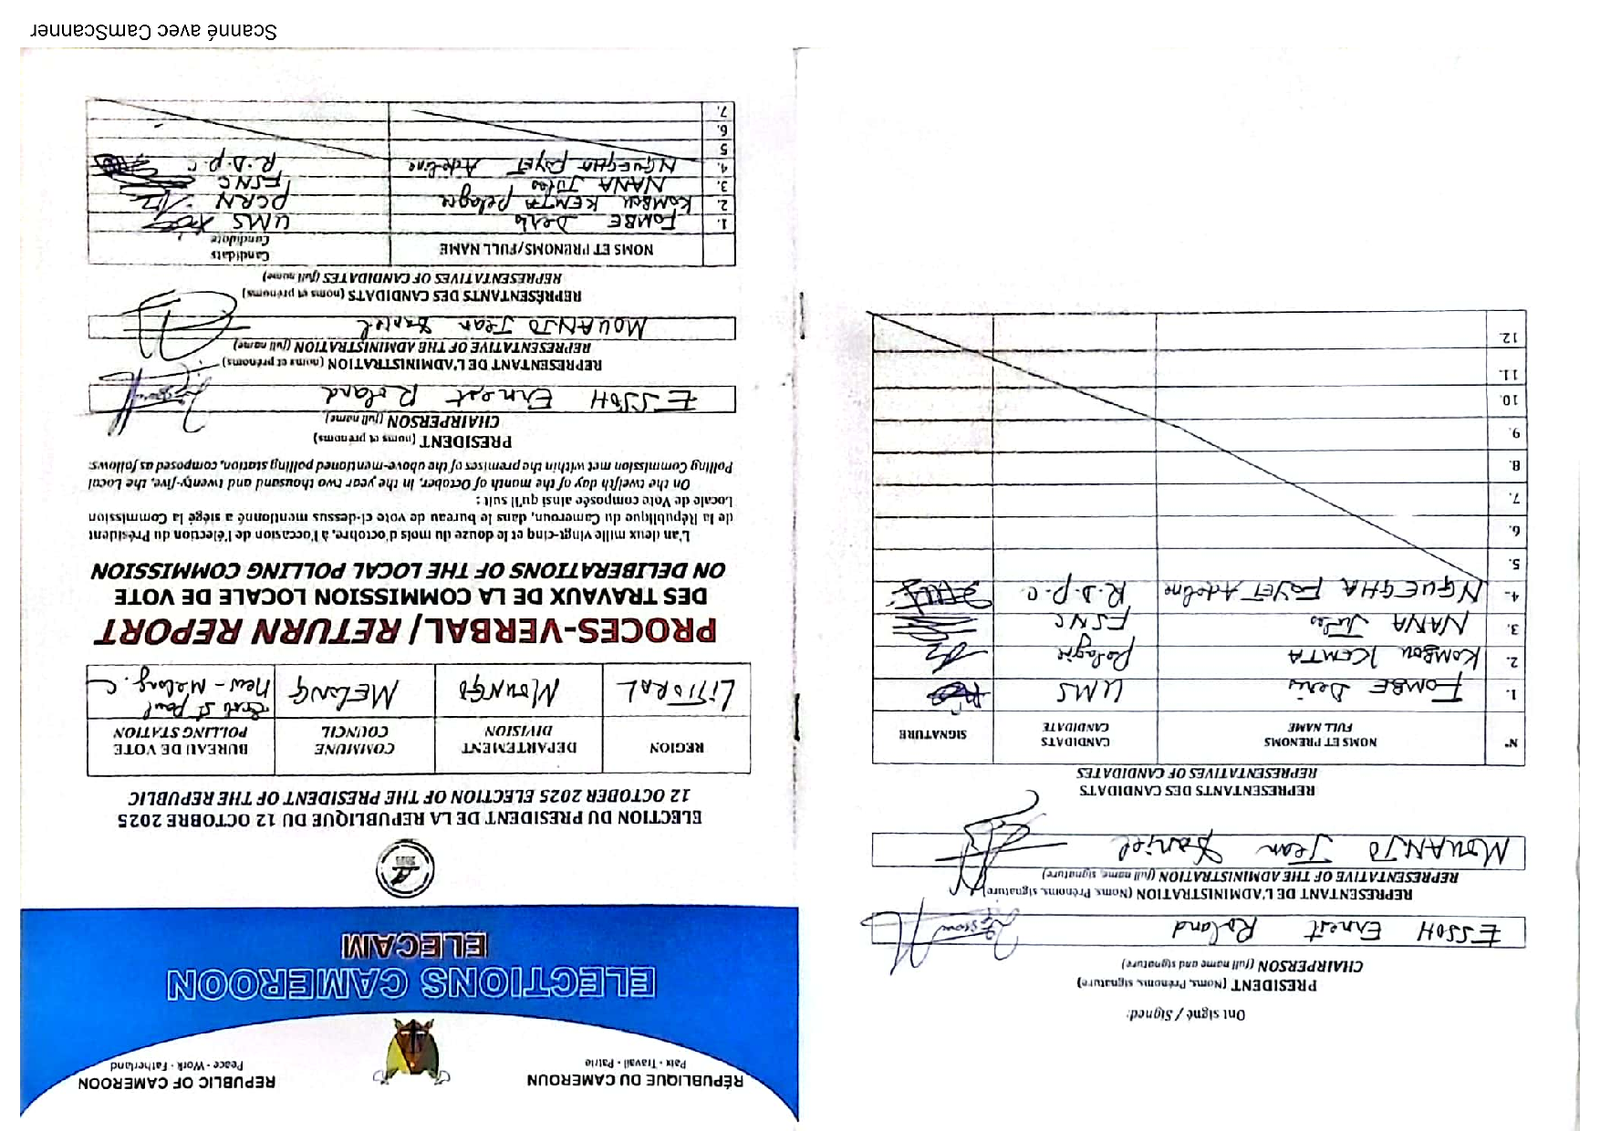 RÉPUBLIQUE DU CAMEROUN
Paix - Travail - Patrie
REPUBLIC OF CAMEROON
Peace - Work - Fatherland
ELECTIONS CAMEROON
ELECAM
ELECTION DU PRESIDENT DE LA REPUBLIQUE DU 12 OCTOBRE 2025
12 OCTOBER 2025 ELECTION OF THE PRESIDENT OF THE REPUBLIC
REGION DEPARTEMENT DIVISION COMMUNE COUNCIL BUREAU DE VOTE POLLING STATION
LITTORAL MOUNGO MELONG St Paul New-Melong C
PROCES-VERBAL/ RETURN REPORT
DES TRAVAUX DE LA COMMISSION LOCALE DE VOTE
ON DELIBERATIONS OF THE LOCAL POLLING COMMISSION
L'an deux mille vingt-cinq et le douze du mois d'octobre, à l'occasion de l'élection du Président
de la République du Cameroun, dans le bureau de vote ci-dessus mentionné a siégé la Commission
Locale de Vote composée ainsi qu'il suit :
On the twelfth day of the month of October, in the year two thousand and twenty-five, the Local
Polling Commission met within the premises of the above-mentioned polling station, composed as follows:
PRESIDENT (noms et prénoms)
CHAIRPERSON (full name)
ESSOH Ernest Roland
REPRESENTANT DE L'ADMINISTRATION (noms et prénoms)
REPRESENTATIVE OF THE ADMINISTRATION (full name)
MOUANJO Jean Daniel
REPRÉSENTANTS DES CANDIDATS (noms et prénoms)
REPRESENTATIVES OF CANDIDATES (full name)
NOMS ET PRENOMS/FULL NAME Candidats Candidate
1. FOMBE Denis UMS
2. KOMBOU KEMTA Pelagie PCRN
3. NANA Jules FSNC
4. NGUEGHA FOYET Adeline R.D.P.C
5
6.
7.
Ont signé / Signed:
PRESIDENT (Noms, Prénoms, signature)
CHAIRPERSON (full name and signature)
ESSOH Ernest Roland
REPRESENTANT DE L'ADMINISTRATION (Noms, Prénoms, signature)
REPRESENTATIVE OF THE ADMINISTRATION (full name, signature)
MOUANJO Jean Daniel
REPRESENTANTS DES CANDIDATS
REPRESENTATIVES OF CANDIDATES
N° NOMS ET PRENOMS FULL NAME CANDIDATS CANDIDATE SIGNATURE
1. FOMBE Denis UMS
2. KOMBOU KEMTA Pelagie
3. NANA Jules FSNC
4. NGUEGHA FOYET Adeline R.D.P.C.
5.
6.
7.
8.
9.
10.
11.
12.
Scanné avec CamScanner